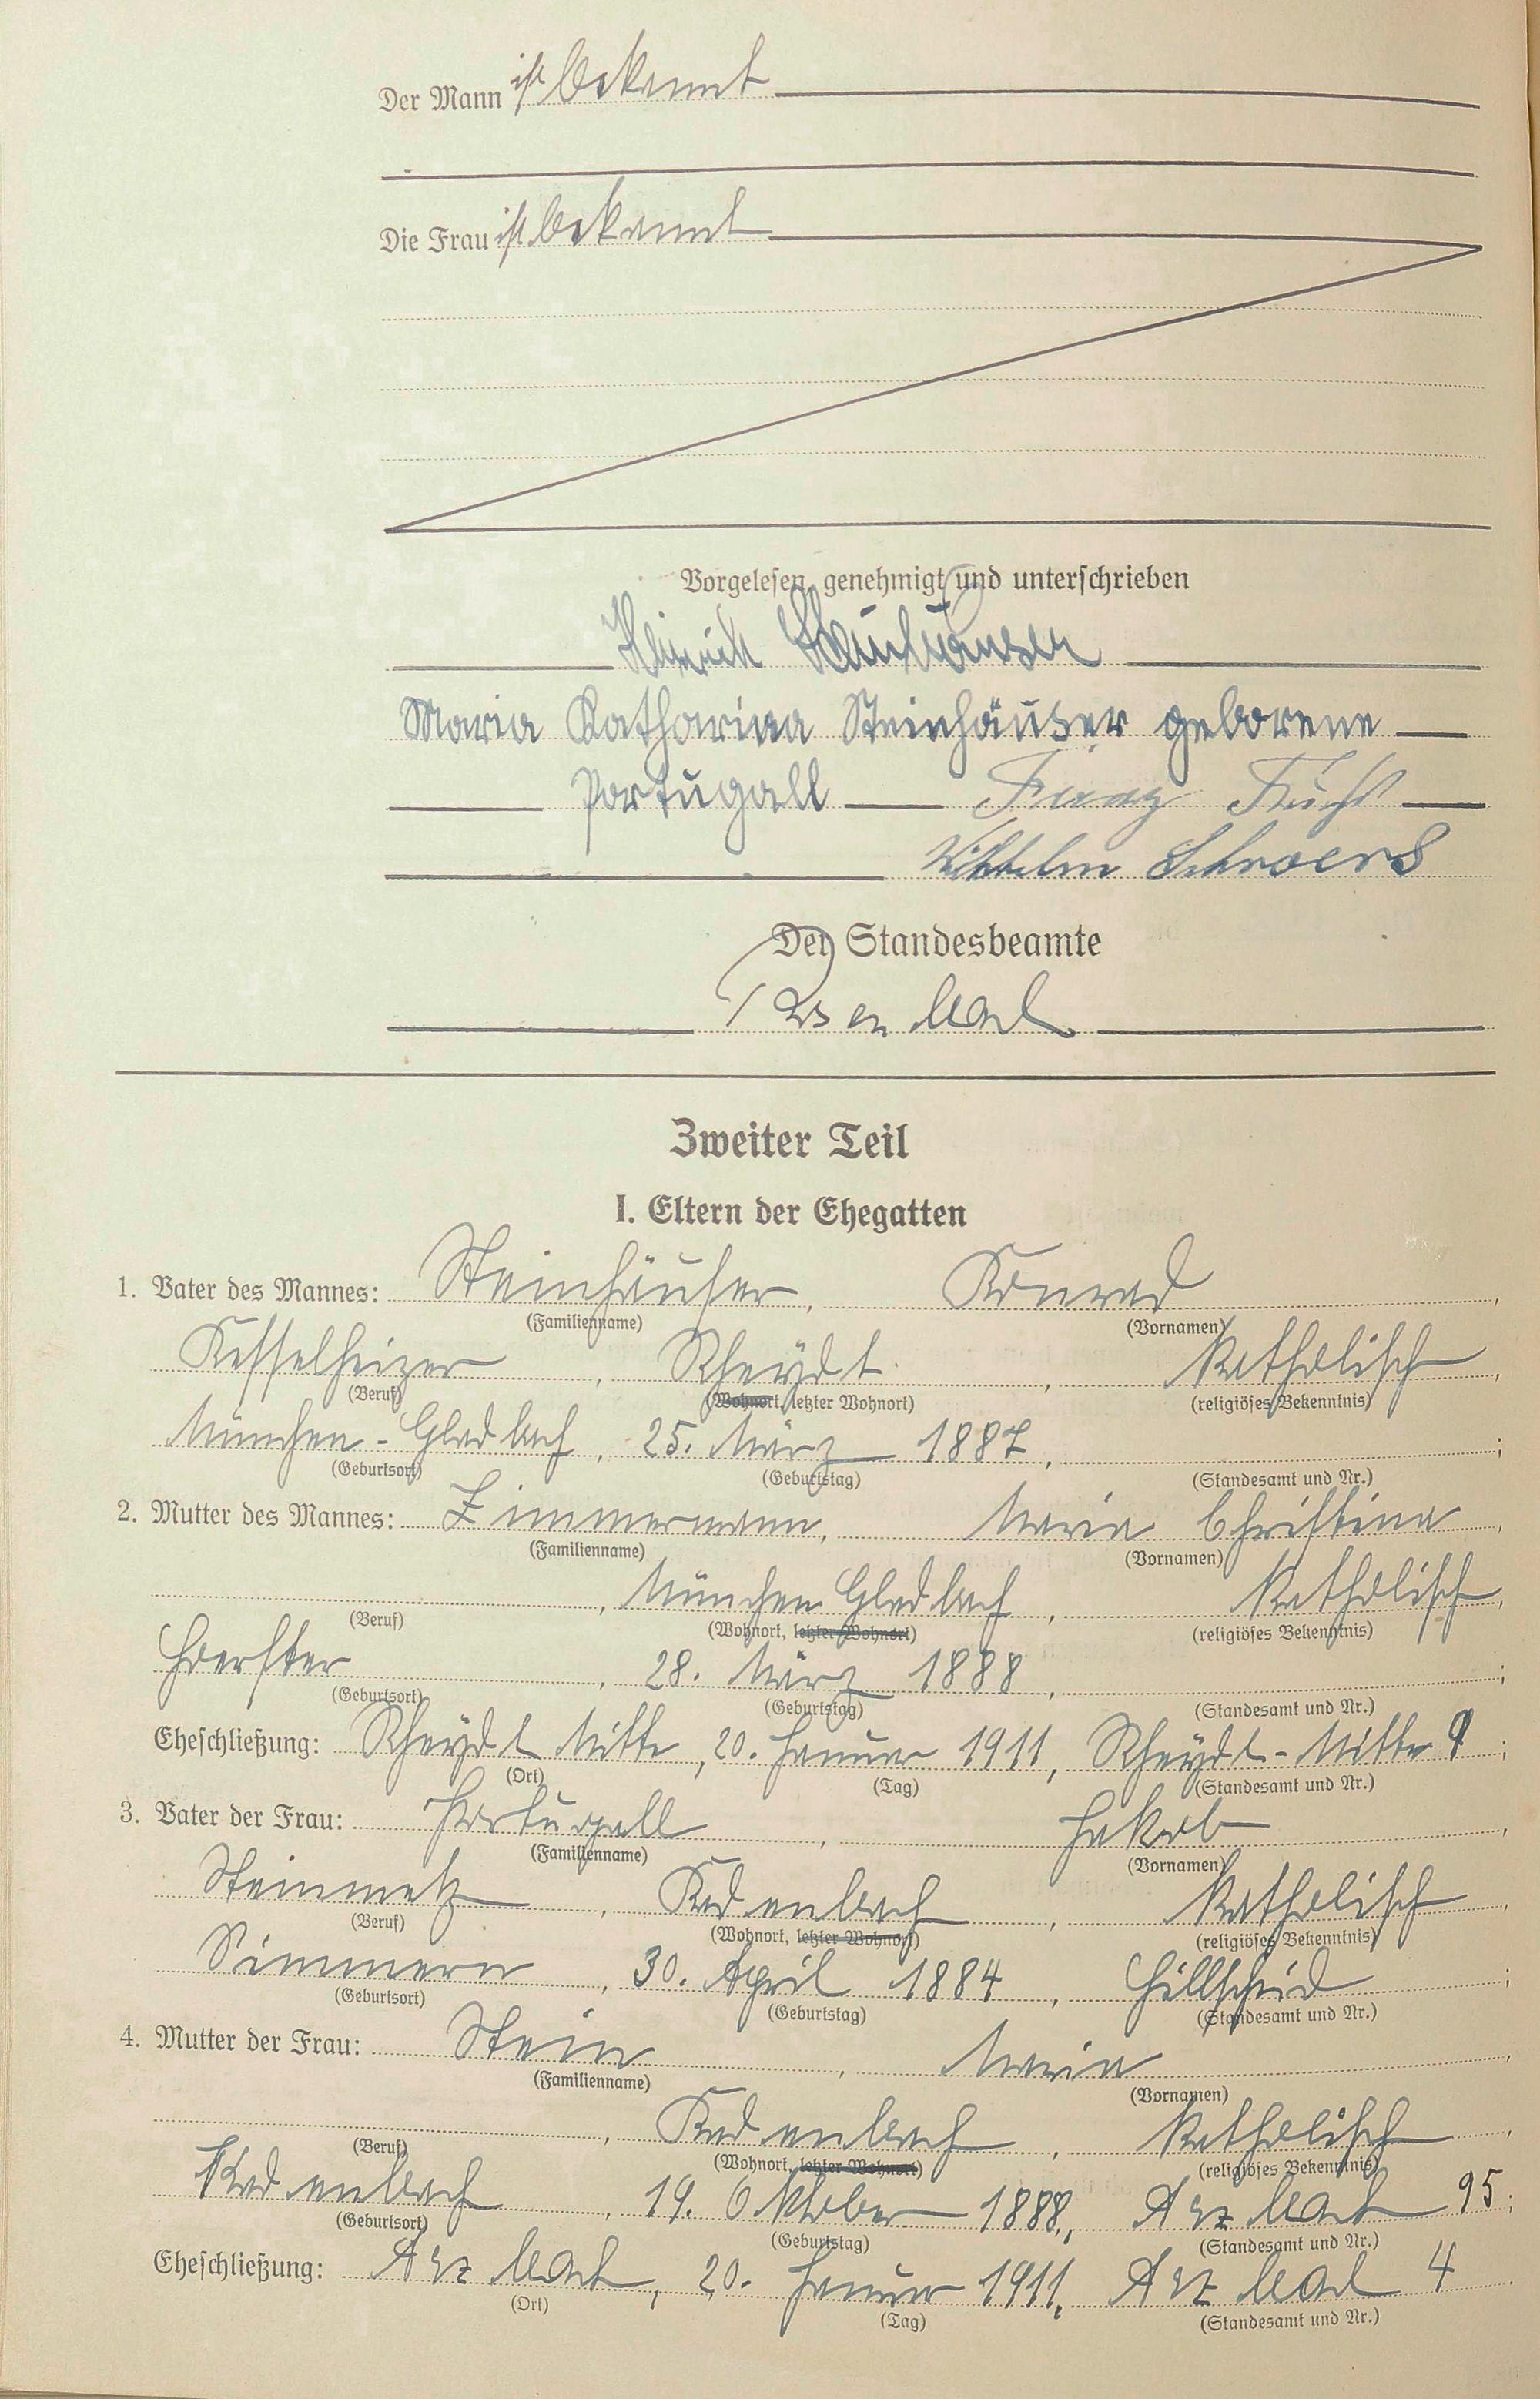 Der Mann ist bekannt
Die Frau ist bekannt
Vorgelesen, genehmigt und unterschrieben
Heinrich Steinhäuser
Maria Katharina Steinhäuser geborene
Portugall Franz
Wilhelm Schroers
Der Standesbeamte
Zweiter Teil
I. Eltern der Ehegatten
1. Vater des Mannes: Steinhäuser, Konrad,
(Familienname) (Vornamen)
Kesselheizer, Rheydt, katholisch,
(Beruf) (Wohnort, letzter Wohnort) (religiöses Bekenntnis)
München-Gladbach, 25. März 1887,
(Geburtsort) (Geburtstag) (Standesamt und Nr.)
2. Mutter des Mannes: Zimmermann, Maria Christina,
(Familienname) (Vornamen)
, München Gladbach, katholisch,
(Beruf) (Wohnort, letzter Wohnort) (religiöses Bekenntnis)
28. März 1888,
(Geburtsort) (Geburtstag) (Standesamt und Nr.)
Eheschließung: Rheydt Mitte, 20. Januar 1911, Rheydt-Mitte 9;
(Ort) (Tag) (Standesamt und Nr.)
3. Vater der Frau: Portugall, Jakob,
(Familienname) (Vornamen)
Steinmetz, Kadenbach, katholisch,
(Beruf) (Wohnort, letzter Wohnort) (religiöses Bekenntnis)
Simmern, 30. April 1884, Hillscheid;
(Geburtsort) (Geburtstag) (Standesamt und Nr.)
4. Mutter der Frau: Stein, Maria,
(Familienname) (Vornamen)
, Kadenbach, katholisch,
(Beruf) (Wohnort, letzter Wohnort) (religiöses Bekenntnis)
Kadenbach, 19. Oktober 1888, Arzbach 95;
(Geburtsort) (Geburtstag) (Standesamt und Nr.)
Eheschließung: Arzbach, 20. Januar 1911, Arzbach 4
(Ort) (Tag) (Standesamt und Nr.)